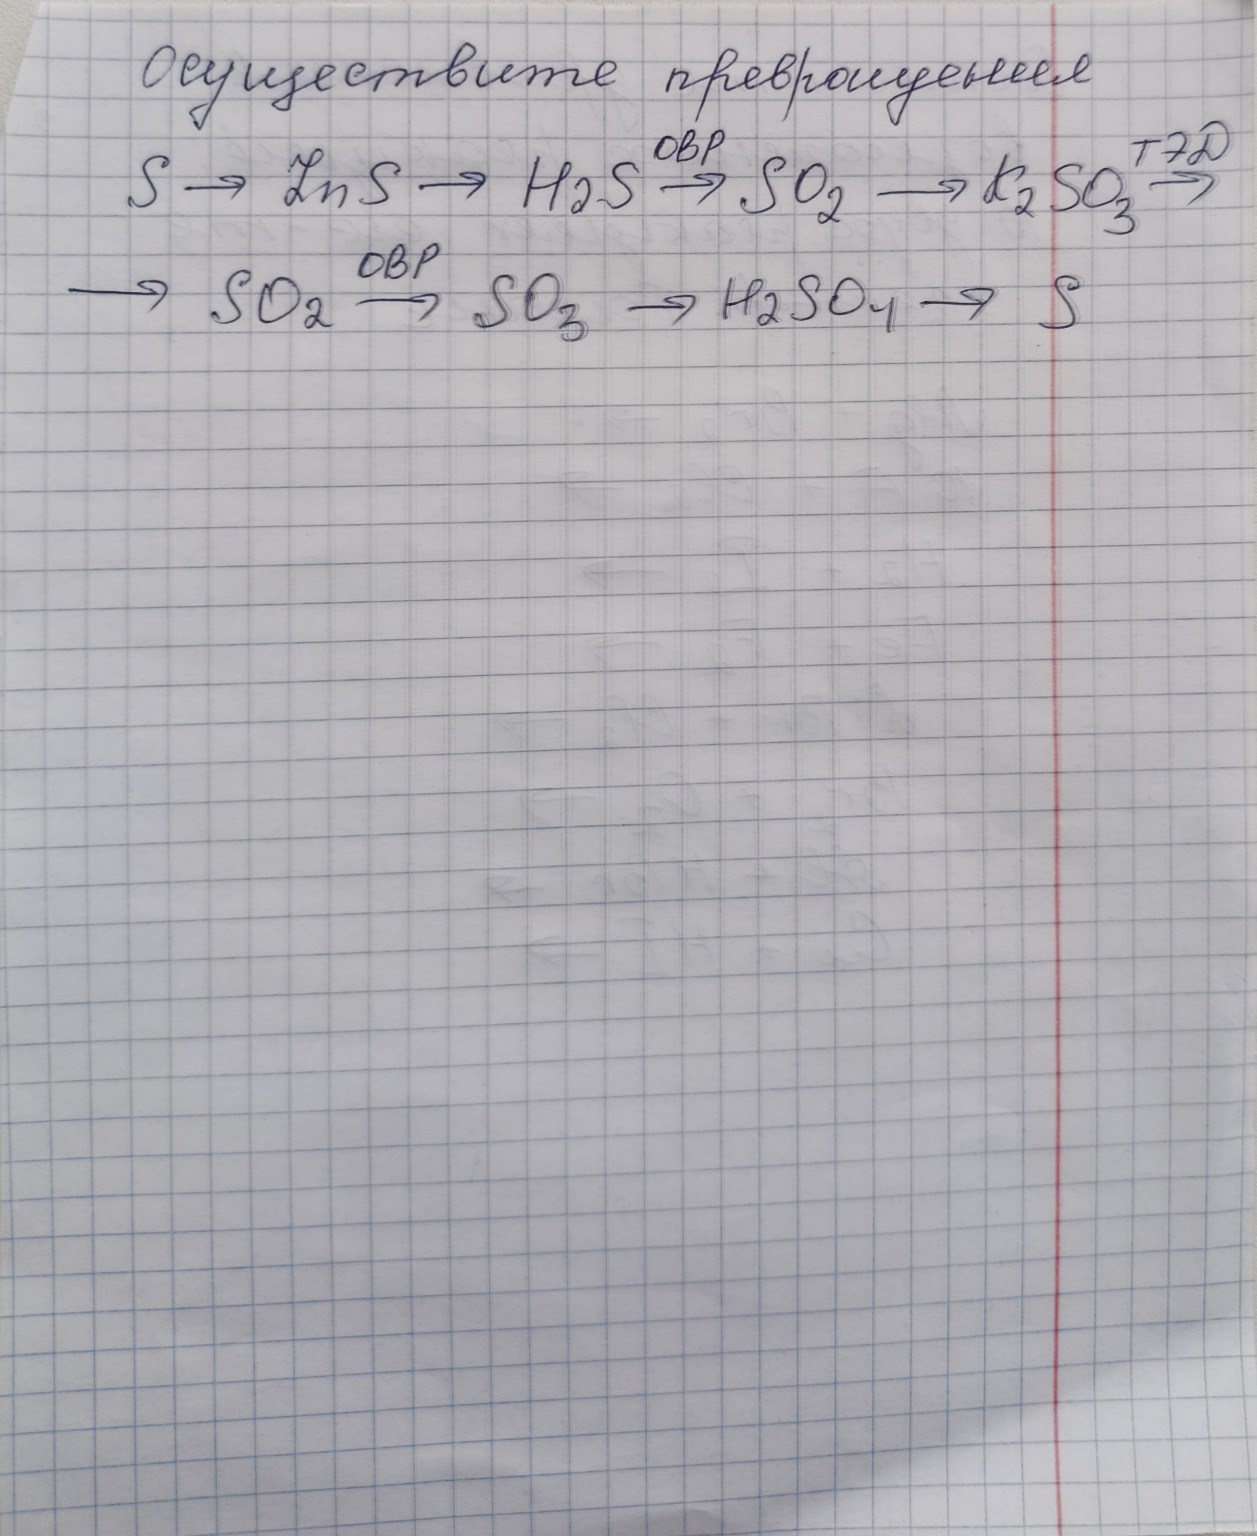 Осуществите превращения
S → ZnS → H2S ОВР→ SO2 → K2SO3 ТЭД→
→ SO2 ОВР→ SO3 → H2SO4 → S